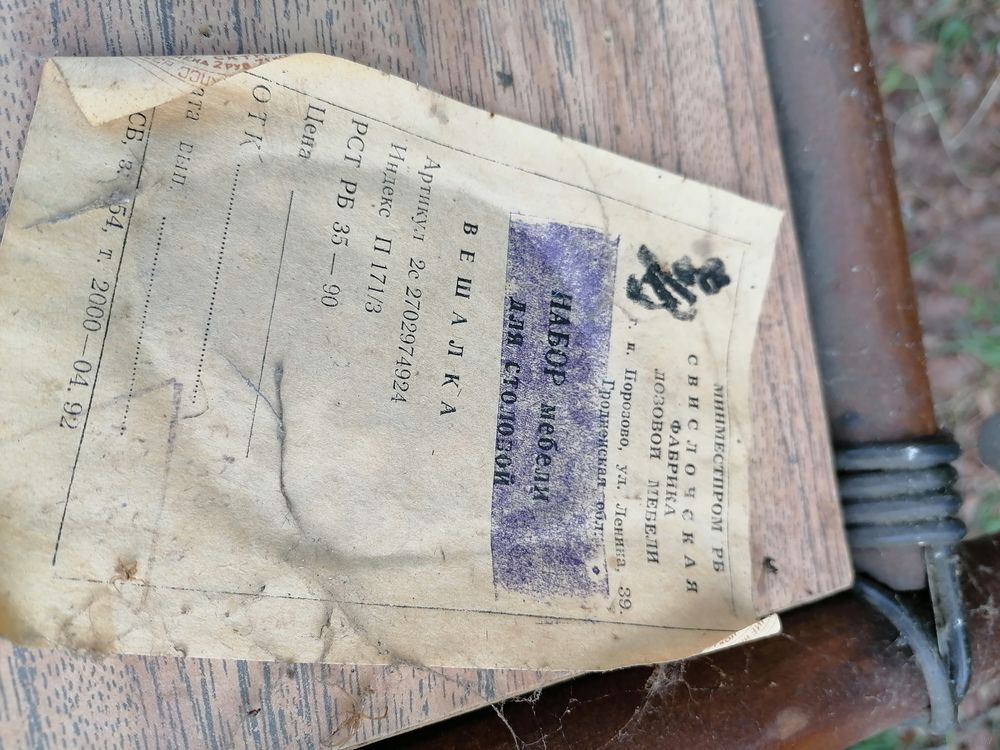 МИНМЕСТПРОМ РБ
СВИСЛОЧСКАЯ
ФАБРИКА
ЛОЗОВОЙ МЕБЕЛИ
г. п. Порозово, ул. Ленина, 39.
Гродненская обл.
НАБОР мебели
для столовой
ВЕШАЛКА
Артикул 2с2702974924
Индекс П 171/3
РСТ РБ 35—90
Цена
ОТК
ата вып.
СБ, з. 54, т. 2000—04.92